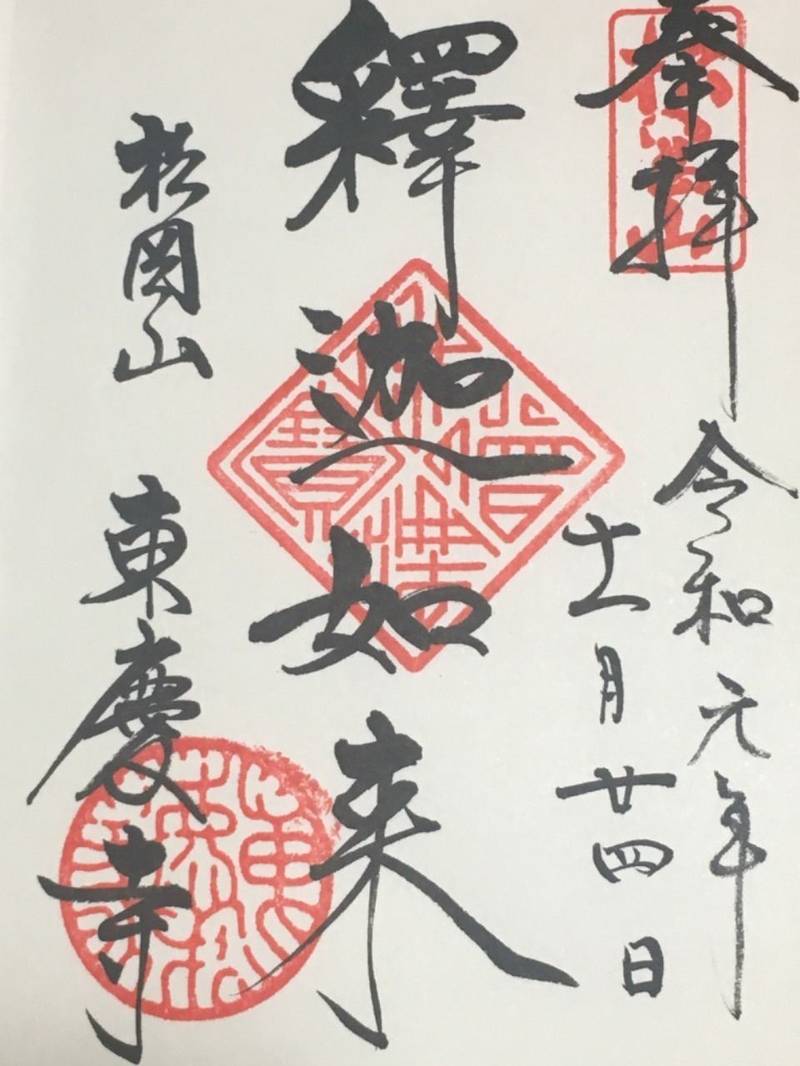 奉拝
令和元年
十一月廿四日
釋迦如来
松岡山
東慶寺